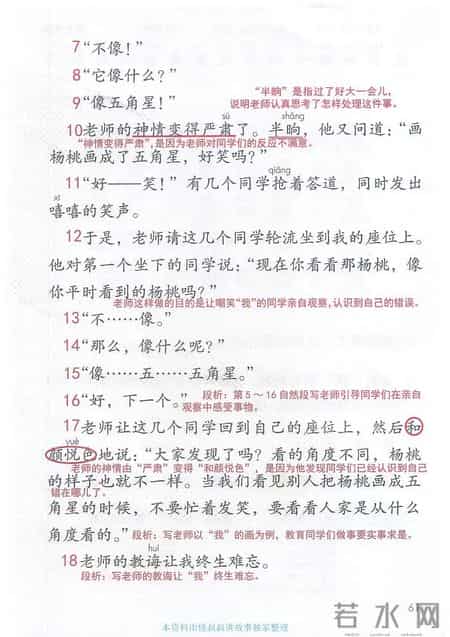 7“不像！”
8“它像什么？”
“半晌”是指过了好大一会儿，
9“像五角星！”
说明老师认真思考了怎样处理这件事。
sù
shǎng
10老师的神情变得严肃了。半晌，他又问道：“画
“神情变得严肃”，是因为老师对同学们的反应不满意。
杨桃画成了五角星，好笑吗？”
qiǎng
11“好——笑！”有几个同学抢着答道，同时发出
xī
嘻嘻的笑声。
12于是，老师请这几个同学轮流坐到我的座位上。
他对第一个坐下的同学说：“现在你看看那杨桃，像
你平时看到的杨桃吗？”
老师这样做的目的是让嘲笑“我”的同学亲自观察，认识到自己的错误。
13“不……像。”
14“那么，像什么呢？”
15“像……五……五角星。”
段析：第5～16自然段写老师引导同学们在亲自
16“好，下一个。”
观察中感受事物。
17老师让这几个同学回到自己的座位上，然后和
yuè
颜悦色地说：“大家发现了吗？看的角度不同，杨桃
老师的神情由“严肃”变得“和颜悦色”，是因为他发现同学们已经认识到自己
的样子也就不一样。当我们看见别人把杨桃画成五
错在哪儿了。
角星的时候，不要忙着发笑，要看看人家是从什么
角度看的。”
段析：写老师以“我”的画为例，教育同学们做事要实事求是。
huì
18老师的教诲让我终生难忘。
段析：写老师的教诲让“我”终生难忘。
6
本资料由怪叔叔讲故事独家整理
若水网